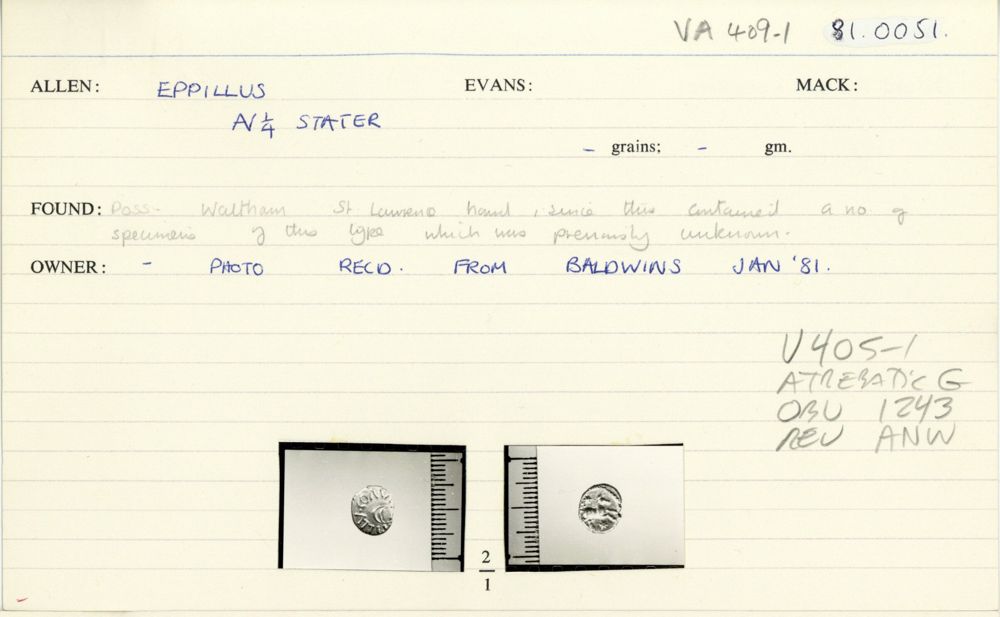 VA 409-1 81.0051.
ALLEN: EPPILLUS EVANS: MACK:
N ¼ STATER
- grains; - gm.
FOUND: Poss. Waltham St. Lawrence hoard, since this contained a no. of
specimens of this type which was previously unknown.
OWNER: - PHOTO RECD. FROM BALDWINS JAN '81.
V405-1
ATREBATIC G
OBV 1243
REV ANW
2
1